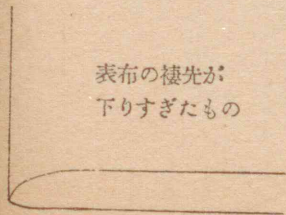 表布の褄先が
下りすぎたもの